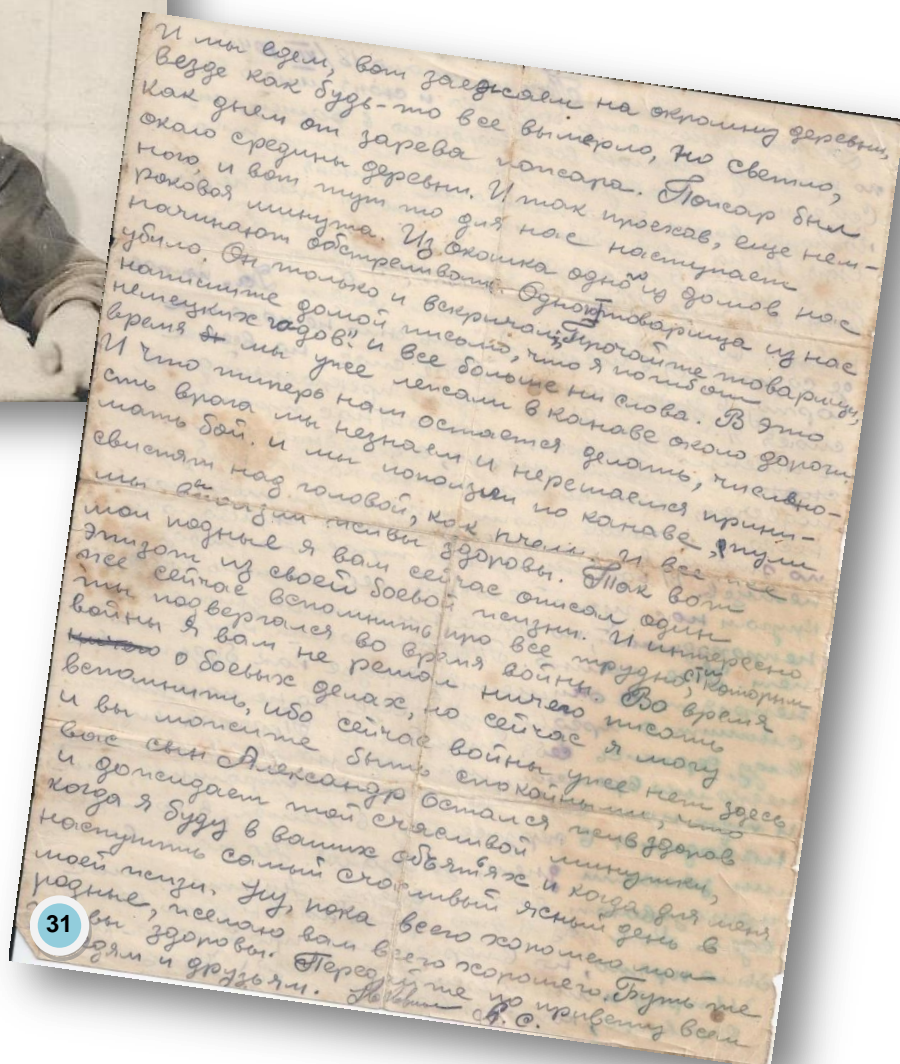 И мы едем, вот заезжаем на огромную деревню,
везде как будь-то все вымерло, но светло,
как днем от зарева пожара. Пожар был
около средины деревни. И так проехав, еще нем-
ного, и вот тут то для нас наступает
роковая минута. Из окошка одного из домов нас
начинают обстреливать. Одного товарища из нас
убило. Он только и вскричал: "Прочайте товарищи,
напишите домой письмо, что я погиб от
немецких гадов" и все больше ни слова. В это
время мы уже лежали в канаве около дороги
И что типерь нам остается делать, числено-
сть врага мы незнаем и нерешаемся прини-
мать бой. и мы поползли по канаве, пули
свистят над головой, как пчелы. И все же
мы выползли живы здоровы. Так вот
мои родные я вам сейчас описал один
эпизот из своей боевой жизни. И интересно
же сейчас вспомнить про все трудности, которым
ты подвергался во время войны. Во время
войны я вам не решал ничего писать
о боевых делах, но сейчас я могу
вспомнить, ибо сейчас войны уже нет здесь
и вы можите быть спокойными, что
ваш сын Александр остался жив здоров
и дожидает той счасливой минутки,
когда я буду в ваших объятьях и когда для меня
наступить самый счасливый ясный день в
моей жизи. Ну, пока всего хорошего мои
родные, желаю вам всего хорошего. Будь те
вы здоровы. Передайте по привету всем
и друзьям.
31